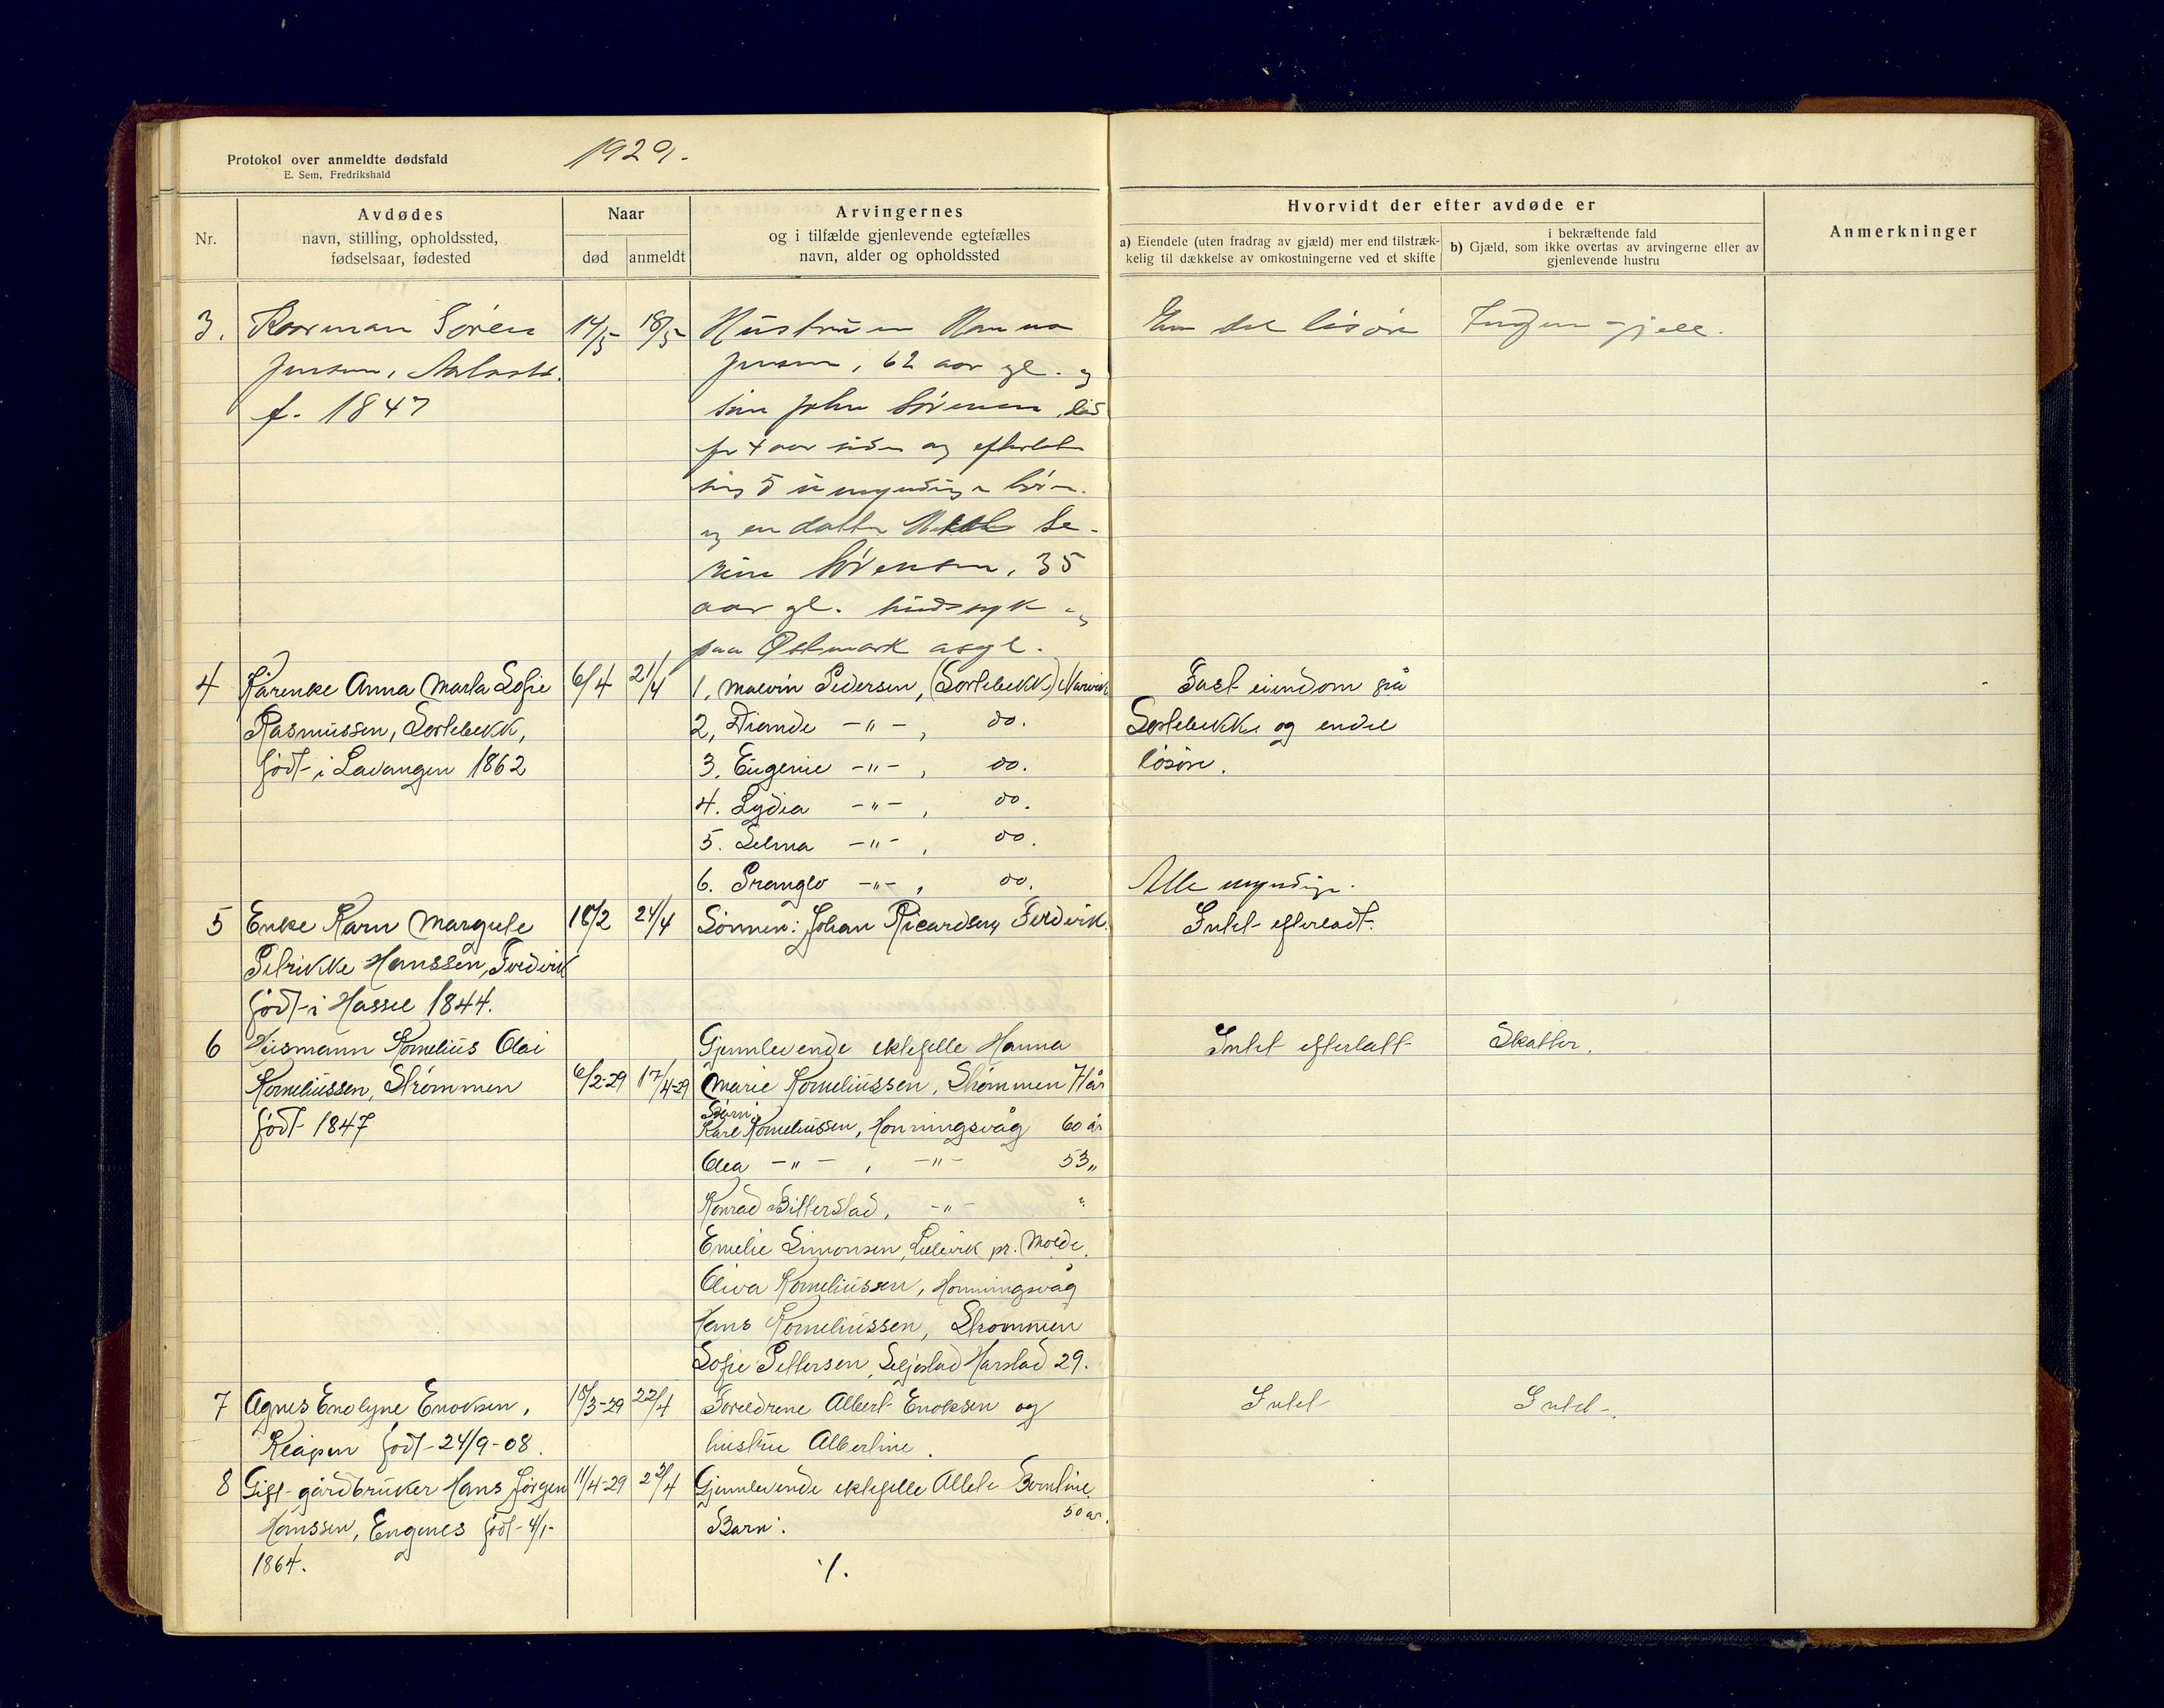 Protokol over anmeldte dødsfald
E. Sem, Fredrikshald
1929.
Nr.
Avdødes
navn, stilling, opholdssted,
fødselsaar, fødested
Naar
død
anmeldt
Arvingernes
og i tilfælde gjenlevende egtefælles
navn, alder og opholdssted
Hvorvidt der efter avdøde er
a) Eiendele (uten fradrag av gjæld) mer end tilstræk-
kelig til dækkelse av omkostningerne ved et skifte
i bekræftende fald
b) Gjæld, som ikke overtas av arvingerne eller av
gjenlevende hustru
Anmerkninger
3. Sören 14/5 18/5 Hustruen Hanna En del lösöre Ingen gjeld.
Jensen, Jensen, 62 aar gl. og
f. 1847 sön John Sörensen, död
for 4 aar siden og efterlot
sig 5 umyndige börn.
og en datter Se-
rine Sörensen, 35
aar gl. sindssyk og
paa Østmark asyl.
4 Kårenke Anna Marta Sofie 6/4 21/4 1, Malvin Pedersen, (Sortebekk) Narvik Fast eiendom på
Rasmussen, Sortebekk, 2, -"-, do. Sortebekk og endel
född i Lavangen 1862 3. Eugenie -"-, do. lösöre.
4. Lydia -"-, do.
5. Selma -"-, do.
6. -"-, do. Alle myndige.
5 Enke Karn Margrete 18/2 24/4 Sönnen: Johan Ricardsen, Intet efterladt.
Petrikke Hanssen,
född i Hassel 1844.
6 Husmann Kornelius Olai Gjenlevende ektefelle Hanna Intet efterlatt Skatter.
Korneliussen, Strömmen 6/2-29 17/4-29 Marie Korneliussen, Strömmen 71 år
född 1847 Barn:
Karl Korneliussen, Honningsvåg 60 år
Olea -"-, -"- 53 "
Konrad Bitterstad, -"- "
Emelie Simonsen, pr. Molde.
Oliva Korneliussen, Honningsvåg
Hans Korneliussen, Strommen
Sofie Pettersen, Seljestad Harstad 29.
7 Agnes Enoksen, 18/3-29 22/4 Foreldrene Albert Enoksen og Intet Intet
född 24/9-08. hustru Albertine.
8 Gift gårdbruker Hans Jörgen 11/4-29 23/4 Gjenlevende ektefelle Berntine
Hanssen, Engenes född 4/1- 50 år.
Barn:
1864. ./.